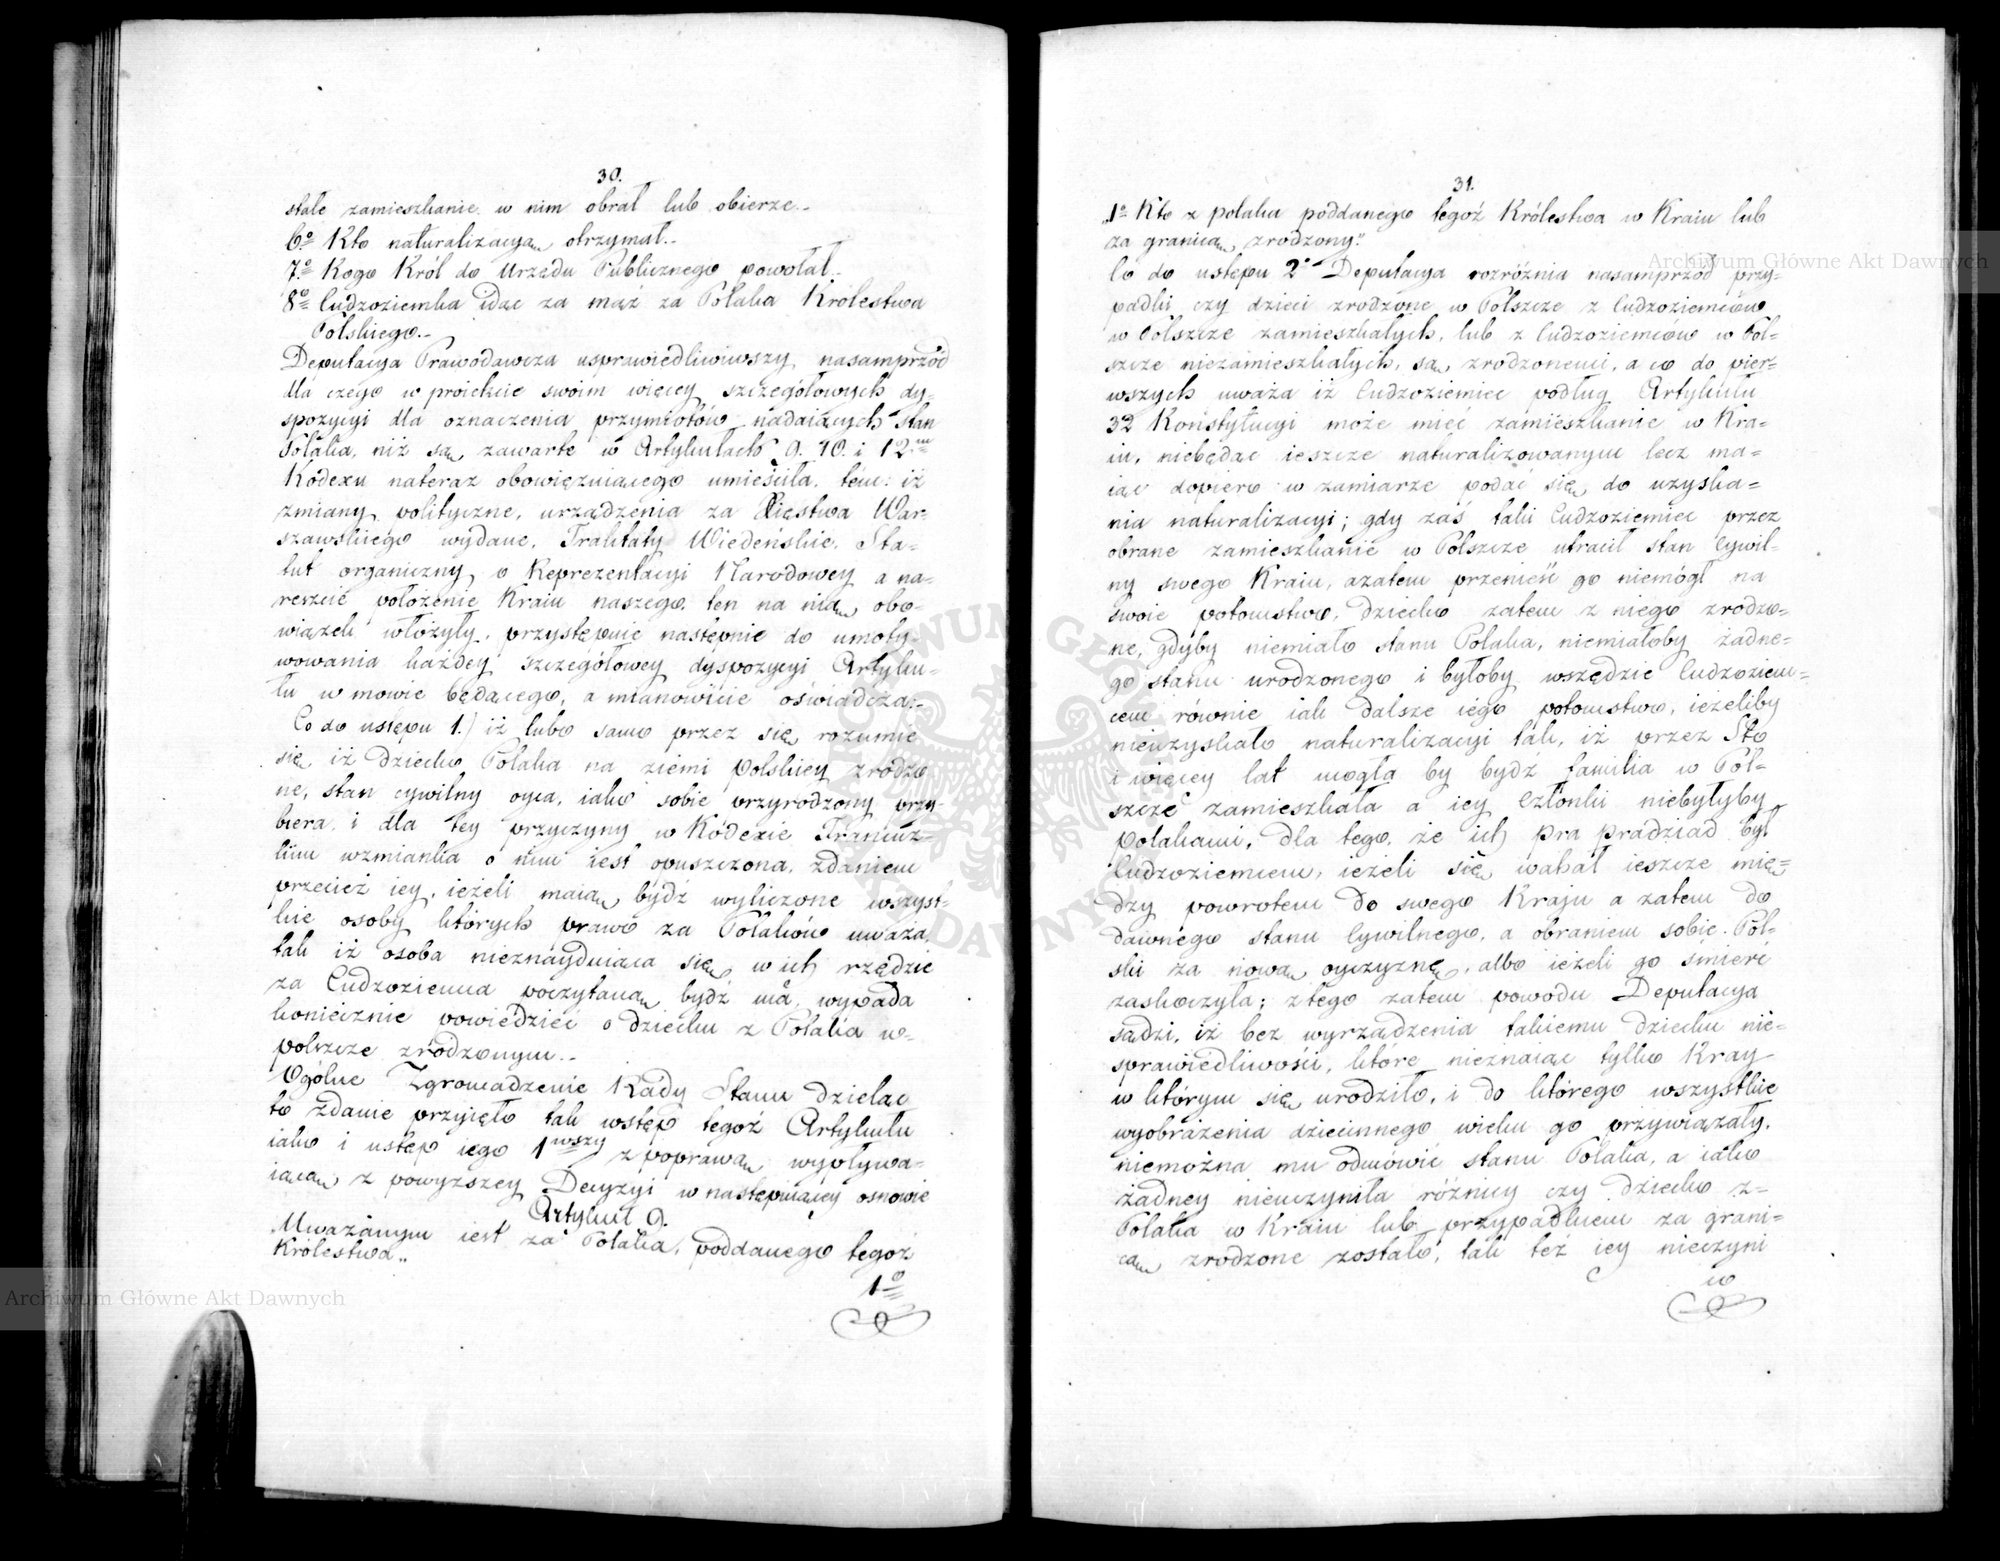 30.
stałe zamieszkanie w nim obrał lub obierze..
6o Kto naturalizacyą otrzymał..
7o Kogo Król do Urzędu Publicznego powołał..
8o Cudzoziemka idąc za mąż za Polaka Królestwa
Polskiego..
Deputacya Prawodawcza usprawiedliwiwszy nasamprzód
dla czego w proiekcie swoim więcey szczegółowych dy-
spozycyi dla oznaczenia przymiotów nadaiących stan
Polaka, niż są zawarte w Artykułach 9. 10. i 12.
Kodexu nateraz obowiązuiącego umieściła, tem: iż
zmiany polityczne, urządzenia za Xięstwa War-
szawskiego wydane, Traktaty Wiedeńskie, Sta-
tut organiczny o Reprezentacyi Narodowey a na-
reszcie położenie Kraiu naszego, ten na nią obo-
wiązek włożyły, przystępuie następnie do umoty-
wowania każdey szczegółowey dyspozycyi Artyku-
łu w mowie będącego, a mianowicie oświadcza:-
Co do ustępu 1.) iż lubo samo przez się rozumie
się iż dziecko Polaka na ziemi Polskiey zrodzo
ne, stan cywilny oyca, iako sobie przyrodzony przy-
biera i dla tey przyczyny w Kodexie Francuz-
kim wzmianka o nim iest opuszczona, zdaniem
przecież iey, ieżeli maią bydź wyliczone wszyst-
kie osoby których prawo za Polaków uważa,
tak iż osoba nieznayduiąca się w ich rzędzie
za Cudzoziemca poczytaną bydź ma, wypada
koniecznie powiedzieć o dziecku z Polaka w-
polszcze zrodzonym..
Ogólne Zgromadzenie Rady Stanu dzieląc
to zdanie przyięło tak wstęp tegoż Artykułu
iako i ustęp iego 1wszy z poprawą wypływa-
iącą z powyższey Decyzyi w następuiącey osnowie
Artykuł 9.
Uważanym iest za Polaka, poddanego tegoż
Królestwa..
1o
31.
„1o Kto z polaka poddanego tegoż Królestwa w Kraiu lub
za granicą zrodzony."
Co do ustępu 2o Deputacya rozróżnia nasamprzód przy-
padki czy dzieci zrodzone w Polszcze z Cudzoziemców
w Polszcze zamieszkałych, lub z Cudzoziemców w Pol-
szcze niezamieszkałych, są zrodzonemi, a co do pier-
wszych uważa iż Cudzoziemiec podług Artykułu
32 Konstytucyi może mieć zamieszkanie w Kra-
iu, niebędąc ieszcze naturalizowanym lecz ma-
iąc dopiero w zamiarze podać się do uzyska-
nia naturalizacyi; gdy zaś taki Cudzoziemiec przez
obrane zamieszkanie w Polszcze utracił stan Cywil-
ny swego Kraiu, azatem przenieść go niemógł na
swoie potomstwo, dziecko zatem z niego zrodzo-
ne, gdyby niemiało stanu Polaka, niemiałoby żadne-
go stanu urodzonego i byłoby wszędzie Cudzoziem-
cem równie iak dalsze iego potomstwo, ieżeliby
nieuzyskało naturalizacyi tak, iż przez Sto
i więcey lat mogła by bydź familia w Pol-
szcze zamieszkała a iey Członki niebyłyby
Polakami, dla tego, że ich pra pradziad był
Cudzoziemcem, ieżeli się wahał ieszcze mię-
dzy powrotem do swego Kraju a zatem do
dawnego stanu Cywilnego, a obraniem sobie Pol-
ski za nową oyczyznę, albo ieżeli go śmierć
zaskoczyła; z tego zatem powodu Deputacya
sądzi, iż bez wyrządzenia takiemu dziecku nie-
sprawiedliwości, które nieznaiąc tylko Kray
w którym się urodziło, i do którego wszystkie
wyobrażenia dziecinnego wieku go przywiązały,
niemożna mu odmówić stanu Polaka, a iako
żadney nieuczyniła różnicy czy dziecko z-
Polaka w Kraiu lub przypadkiem za grani-
cą zrodzone zostało, tak też iey nieczyni
co
Archiwum Główne Akt Dawnych
Archiwum Główne Akt Dawnych
ARCHIWUM GŁÓWNE AKT DAWNYCH